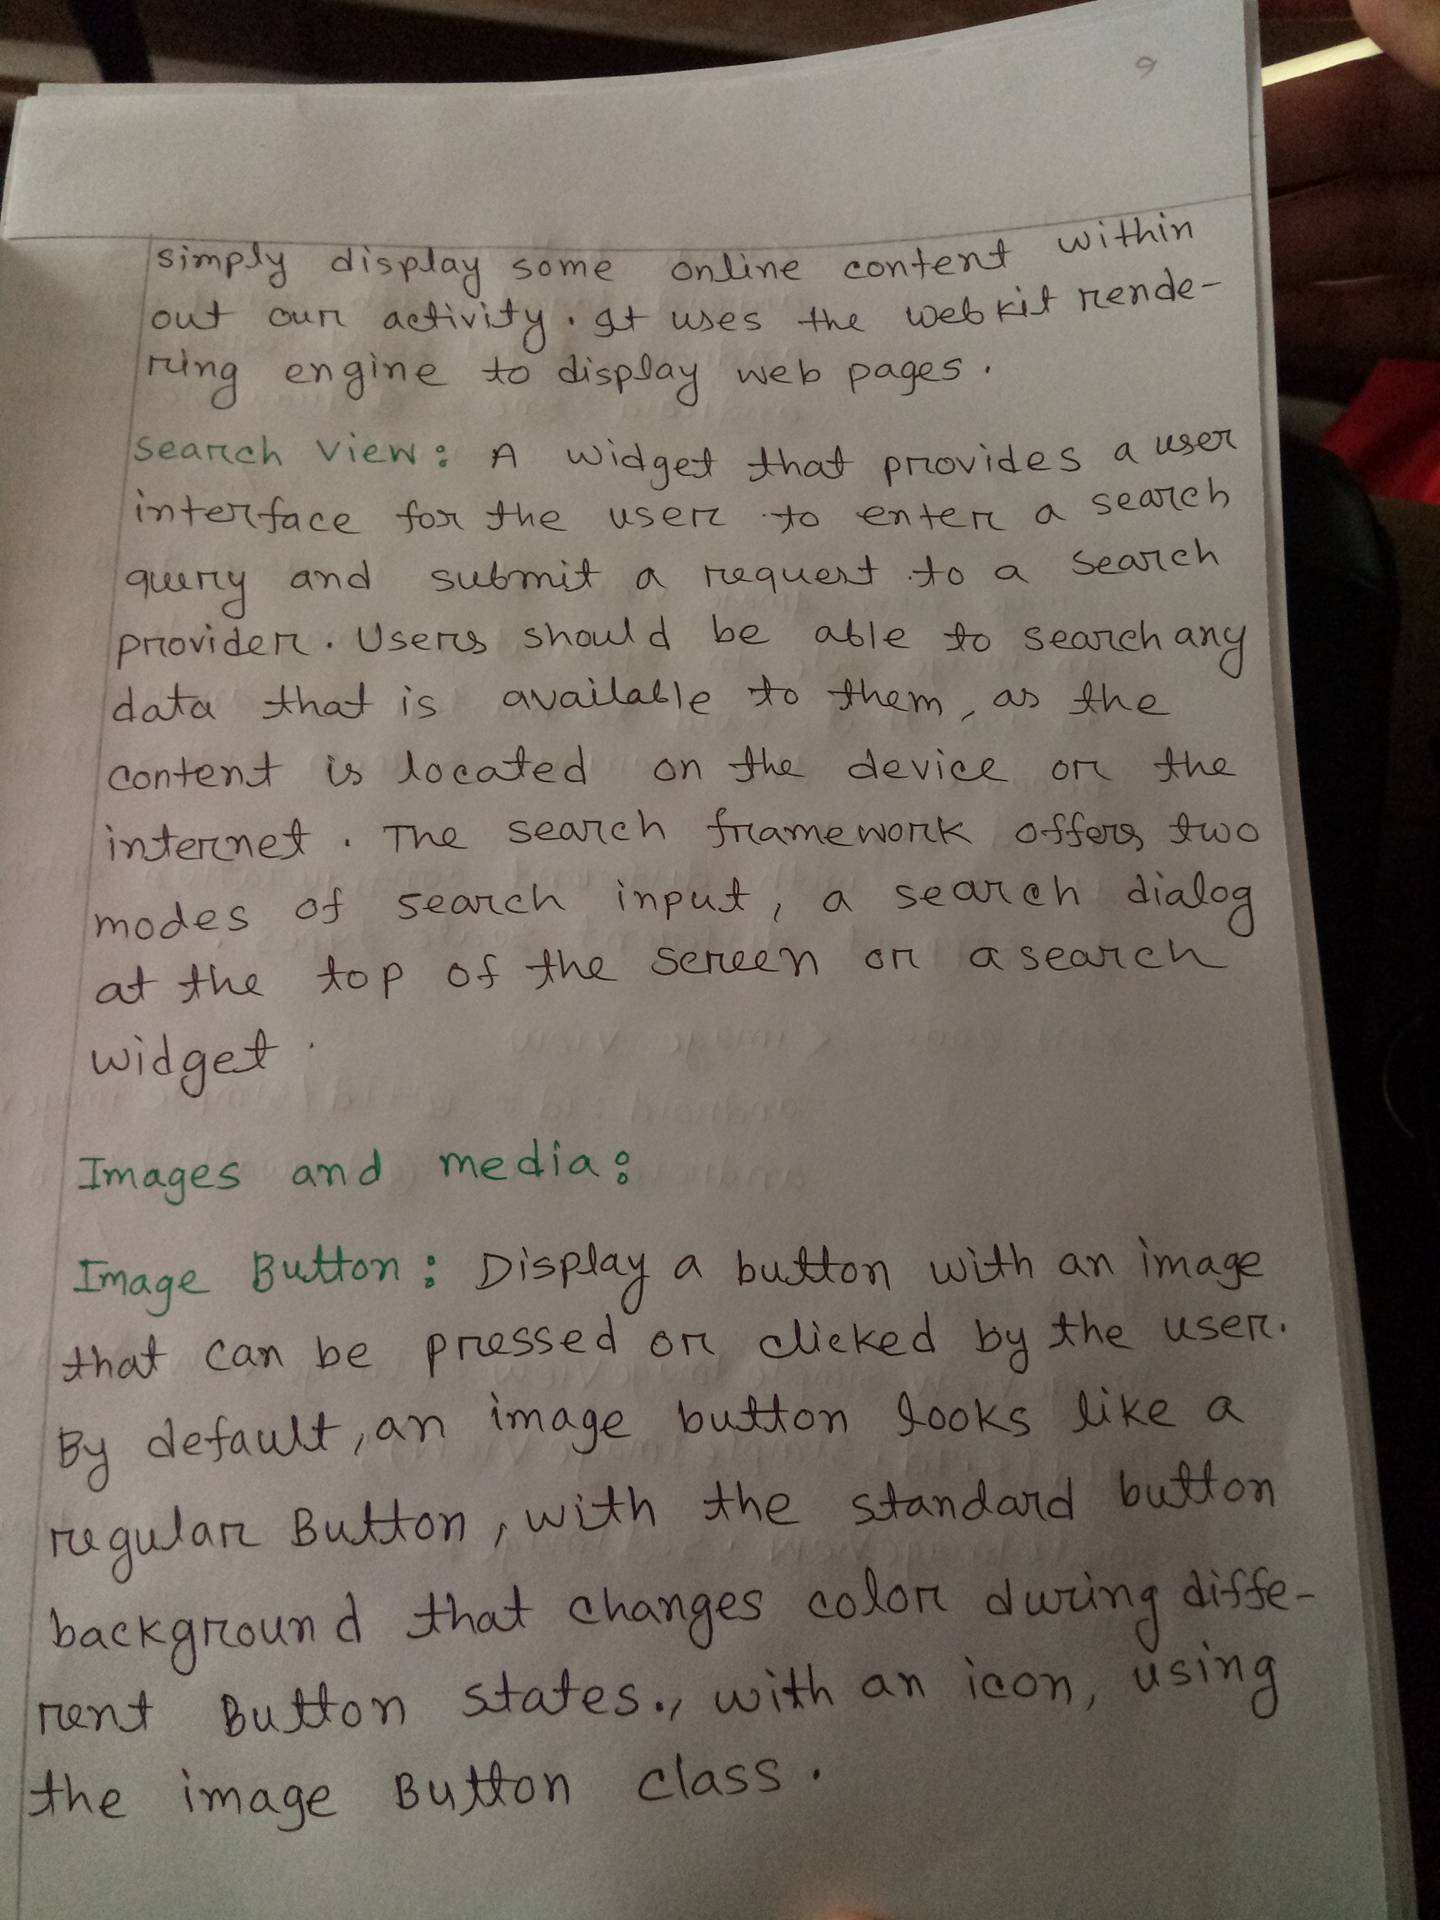 9
simply display some online content within
out our activity. It uses the webkit rende-
ring engine to display web pages.
Search View: A widget that provides a user
interface for the user to enter a search
query and submit a request to a search
provider. Users should be able to search any
data that is available to them, as the
content is located on the device or the
internet. The search framework offers two
modes of search input, a search dialog
at the top of the screen or a search
widget.
Images and media:
Image Button: Display a button with an image
that can be pressed or clicked by the user.
By default, an image button looks like a
regular Button, with the standard button
background that changes color during diffe-
rent Button states., with an icon, using
the image Button class.